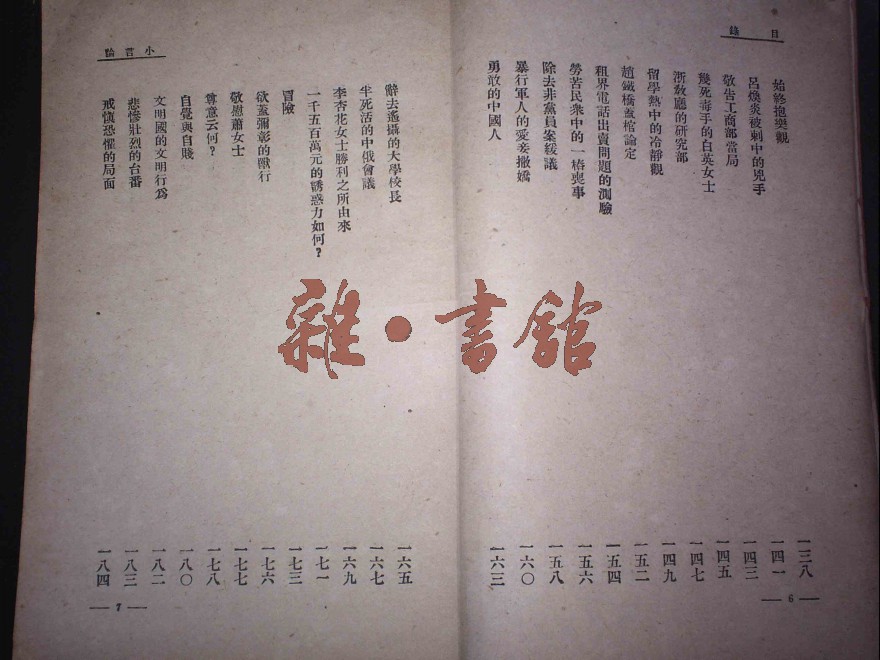 目錄
始終抱樂觀 一三八
呂煥炎被刺中的兇手 一四一
敬告工商部當局 一四三
幾死毒手的白英女士 一四五
浙教廳的研究部 一四七
留學熱中的冷靜觀 一四九
趙鐵橋蓋棺論定 一五二
租界電話出賣問題的測驗 一五四
勞苦民衆中的一樁喪事 一五六
除去非黨員案緩議 一五八
暴行軍人的愛妾撤嬌 一六〇
勇敢的中國人 一六三
— 6 —
小言論
辭去遙攝的大學校長 一六五
半死活的中俄會議 一六七
李杏花女士勝利之所由來 一六九
一千五百萬元的誘惑力如何？ 一七一
冒險 一七三
欲蓋彌彰的獸行 一七六
敬慰蕭女士 一七七
尊意云何？ 一七八
自覺與自賤 一八〇
文明國的文明行爲 一八二
悲慘壯烈的台番 一八三
戒愼恐懼的局面 一八四
— 7 —
雜·書館